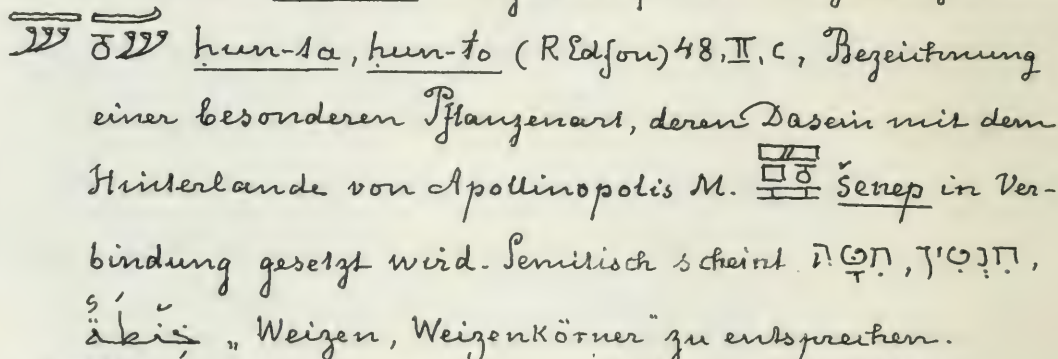 ḥun-ta, ḥun-to (R Edfou) 48, II, c, Bezeichnung
einer besonderen Pflanzenart, deren Dasein mit dem
Hinterlande von Apollinopolis M. šenep in Ver-
bindung gesetzt wird. Semitisch scheint חִטָּה, חִנְטִין,
„Weizen, Weizenkörner" zu entsprechen.